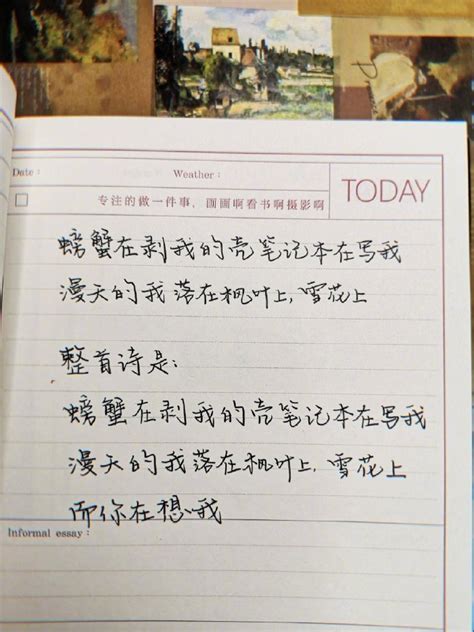 Date：
Weather：
TODAY
专注的做一件事、画画啊看书啊摄影啊
螃蟹在剥我的壳笔记本在写我
漫天的我落在枫叶上,雪花上
整首诗是：
螃蟹在剥我的壳笔记本在写我
漫天的我落在枫叶上,雪花上
而你在想哦我
Informal essay：